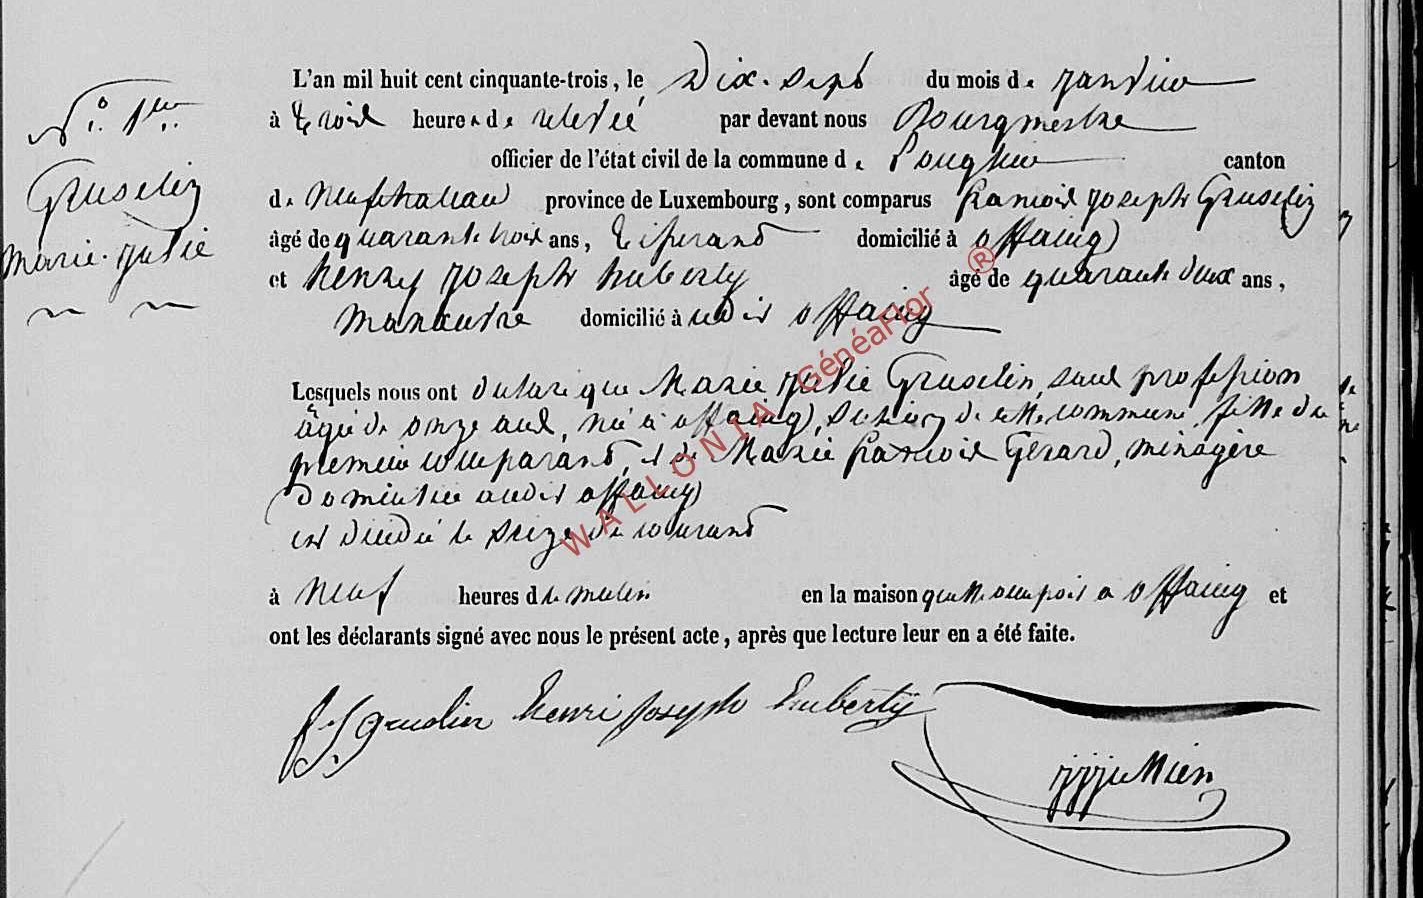 N.° 1er
Gruselin
Marie-Julie
L'an mil huit cent cinquante-trois, le Dix-sept du mois de janvier
à trois heures de relevée par devant nous Bourgmestre
officier de l'état civil de la commune de Longlier canton
de Neufchateau province de Luxembourg, sont comparus francois joseph Gruselin
âgé de quarante trois ans, tisserand domicilié à offaing
et henry joseph huberty âgé de quarante deux ans,
manœuvre domicilié à audit offaing
Lesquels nous ont déclaré que Marie julie Gruselin, sans profession
âgée de onze ans, née à offaing, section de cette commune, fille du
premier comparant, et de Marie francois Gérard, ménagère
domiciliée audit offaing
est décédée le seize du courant
à neuf heures du matin en la maison qu'elle occupoit a offaing et
ont les déclarants signé avec nous le présent acte, après que lecture leur en a été faite.
f J Gruslin henri joseph huberty
jjjullien
WALLONIA GénéaFlor ®